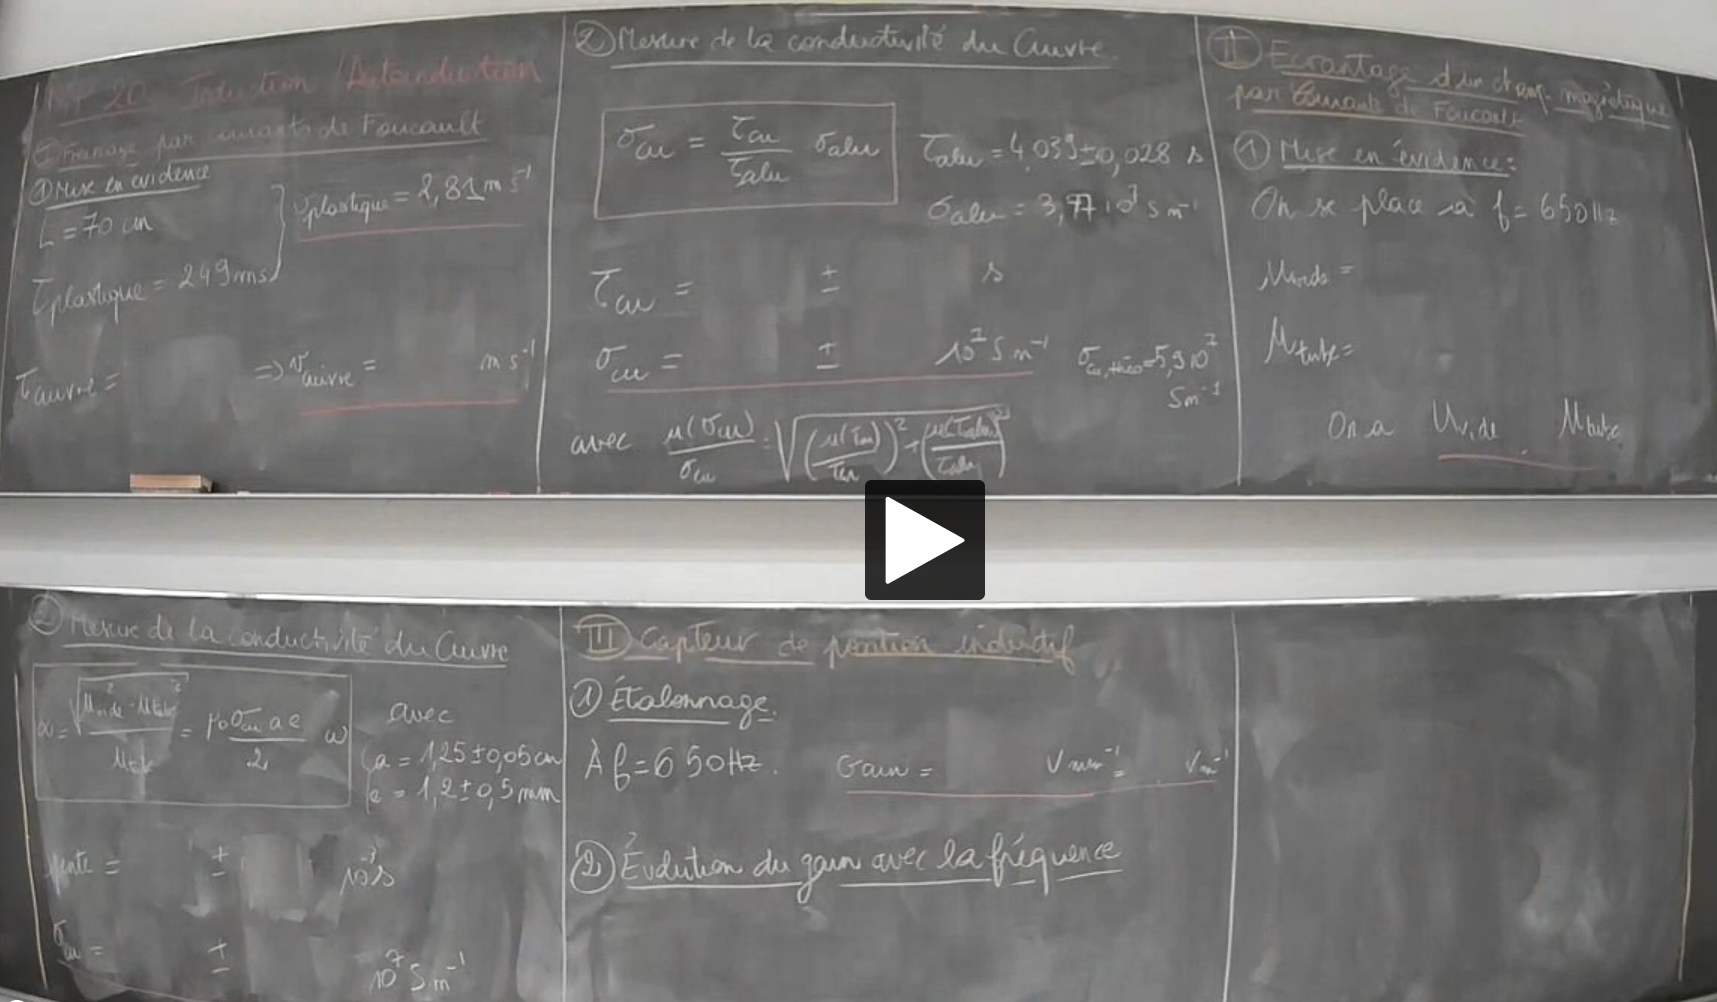 MP 20 Induction / Autoinduction
I Freinage par courants de Foucault
1 Mise en évidence
L = 70 cm
τplastique = 249 ms
vplastique = 2,81 m s⁻¹
τcuivre = ⇒ vcuivre = m s⁻¹
2 Mesure de la conductivité du Cuivre
σcu = τcu/τalu σalu
τalu = 4,039 ± 0,028 s
σalu = 3,77 10⁷ S m⁻¹
τcu = ± s
σcu = ± 10⁷ S m⁻¹
σcu,théo = 5,9 10⁷
Sm⁻¹
avec u(σcu)/σcu = √((u(τcu)/τcu)² + (u(τalu)/τalu)²)
II Ecrantage d'un champ magnétique
par Courants de Foucault
1 Mise en évidence :
On se place à f = 650 Hz
Uvide =
Utube =
On a Uvide Utube
2 Mesure de la conductivité du Cuivre
α = √(Uvide² - Utube²)/Utube = μ0 σcu a e/2 ω
avec
a = 1,25 ± 0,05 cm
e = 1,2 ± 0,5 mm
pente = ± 10⁻³ s
σcu = ± 10⁷ S m⁻¹
III Capteur de position inductif
1 Étalonnage.
À f = 650 Hz. Gain = V mm⁻¹ = V m⁻¹
2 Évolution du gain avec la fréquence